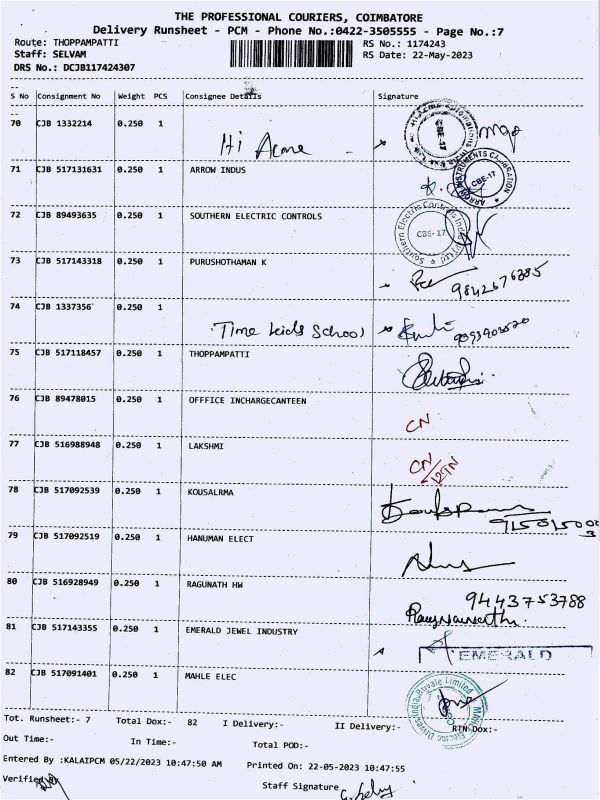 THE PROFESSIONAL COURIERS, COIMBATORE
Delivery Runsheet - PCM - Phone No.:0422-3505555 - Page No.:7
Route: THOPPAMPATTI RS No.: 1174243
Staff: SELVAM RS Date: 22-May-2023
DRS No.: DCJB117424307
S No Consignment No Weight PCS Consignee Details Signature
70 CJB 1332214 0.250 1 Hi Acme
CBE-17
71 CJB 517131631 0.250 1 ARROW INDUS
CBE-17
72 CJB 89493635 0.250 1 SOUTHERN ELECTRIC CONTROLS
CBE-17
73 CJB 517143318 0.250 1 PURUSHOTHAMAN K
9842676385
74 CJB 1337356 0.250 1 Time kids School
75 CJB 517118457 0.250 1 THOPPAMPATTI
76 CJB 89478015 0.250 1 OFFFICE INCHARGECANTEEN CN
77 CJB 516988948 0.250 1 LAKSHMI CN
78 CJB 517092539 0.250 1 KOUSALRMA
79 CJB 517092519 0.250 1 HANUMAN ELECT
80 CJB 516928949 0.250 1 RAGUNATH HW 9443753788
81 CJB 517143355 0.250 1 EMERALD JEWEL INDUSTRY EMERALD
82 CJB 517091401 0.250 1 MAHLE ELEC
Tot. Runsheet:- 7 Total Dox:- 82 I Delivery:- II Delivery:- RTN Dox:-
Out Time:- In Time:- Total POD:-
Entered By :KALAIPCM 05/22/2023 10:47:50 AM Printed On: 22-05-2023 10:47:55
Verified By Staff Signature